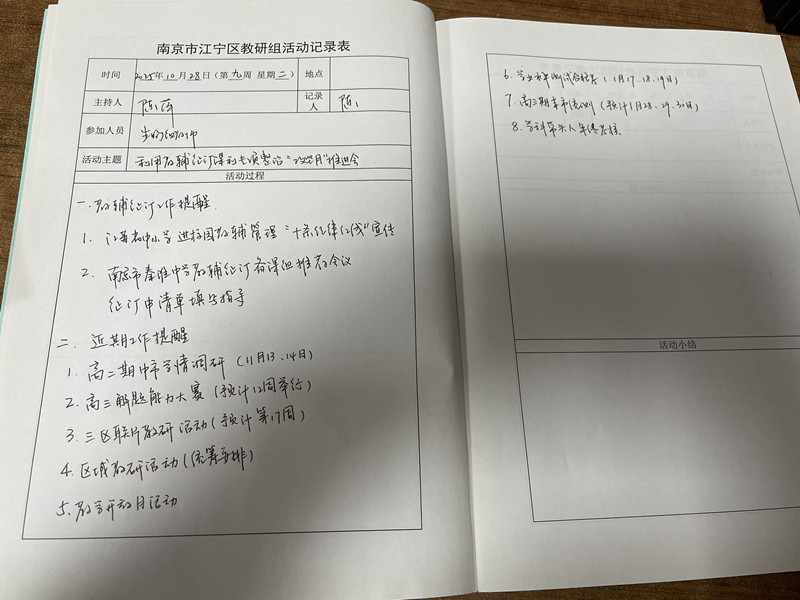 南京市江宁区教研组活动记录表
时间 2025年10月28日（第九周 星期二） 地点
主持人 陈 记录人 陈
参加人员
活动主题 利用教辅征订谋利专项整治"改"推进会
活动过程
一、教辅征订工作提醒
1. 江苏省中小学进校园教辅管理"十条纪律红线"宣传
2. 南京市秦淮中学教辅征订备课组推荐会议
征订申请单填写指导
二、近期工作提醒
1. 高二期中市学情调研（11月13、14日）
2. 高三解题能力大赛（预计12周举行）
3. 三区联片教研活动（预计第17周）
4. 区域教研活动（统筹安排）
5. 教学开放日活动
6. 学业水平测试合格考（1月17、18、19日）
7. 高三期末市统测（预计1月28、29、30日）
8. 学科
活动小结